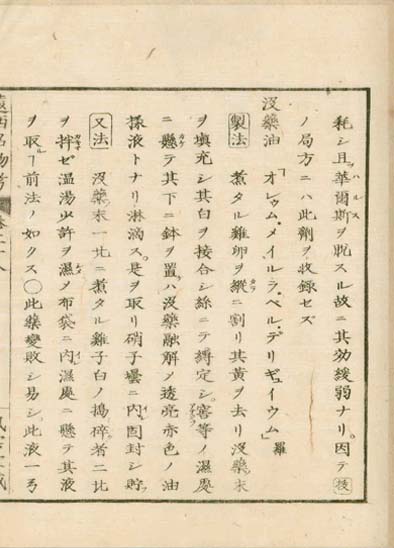 耗シ且ツ華爾斯ハルスヲ脱スル故ニ其効緩弱ナリ。因テ後
ノ局方ニハ此劑ヲ收録セズ
沒藥油「オレウム・メイルラ・ペル・デリギュイウム」羅
製法 煮タル雞卵ヲ縱タテニ割リ其黄ヲ去リ沒藥末
ヲ填充シ其白ヲ接合シ絲ニテ縛定シ。窖等ノ濕處
ニ懸カケテ其下ニ鉢ヲ置ケバ沒藥融解ノ透亮赤色ノ油
樣液トナリ淋滴ス。是ヲ取リ硝子壜ニ内イレ固封シ貯フ
又法 沒藥末一比ニ煮タル雞子白ノ搗碎者二比
ヲ拌カキマゼ温湯少許ヲ濕シメメ布袋ニ内イレ濕處ニ懸テ其液
ヲ取ル「前法ノ如クス〇此藥變敗シ易シ此液一弓
遠西名物考